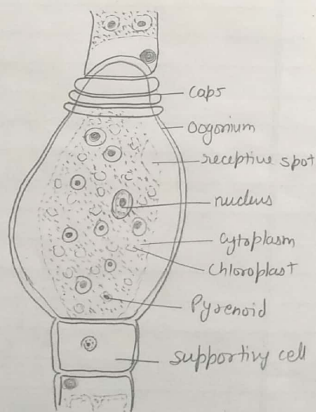 caps
Oogonium
receptive spot
nucleus
cytoplasm
chloroplast
Pyrenoid
supportivy cell